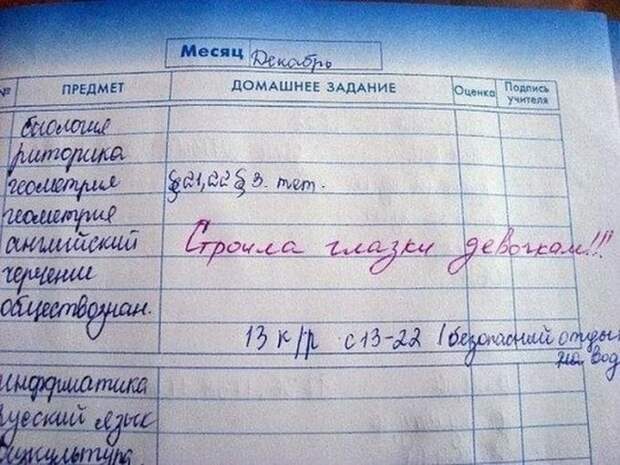 Месяц Декабрь
№ ПРЕДМЕТ ДОМАШНЕЕ ЗАДАНИЕ Оценка Подпись учителя
биология
риторика
геометрия § 21, 22 § 3. тет.
геометрия
английский Строила глазки девочкам!!!
черчение
обществознан.
13 к/р с 13-22 (безопасный отды
на вод
информатика
русский язык
физкультура